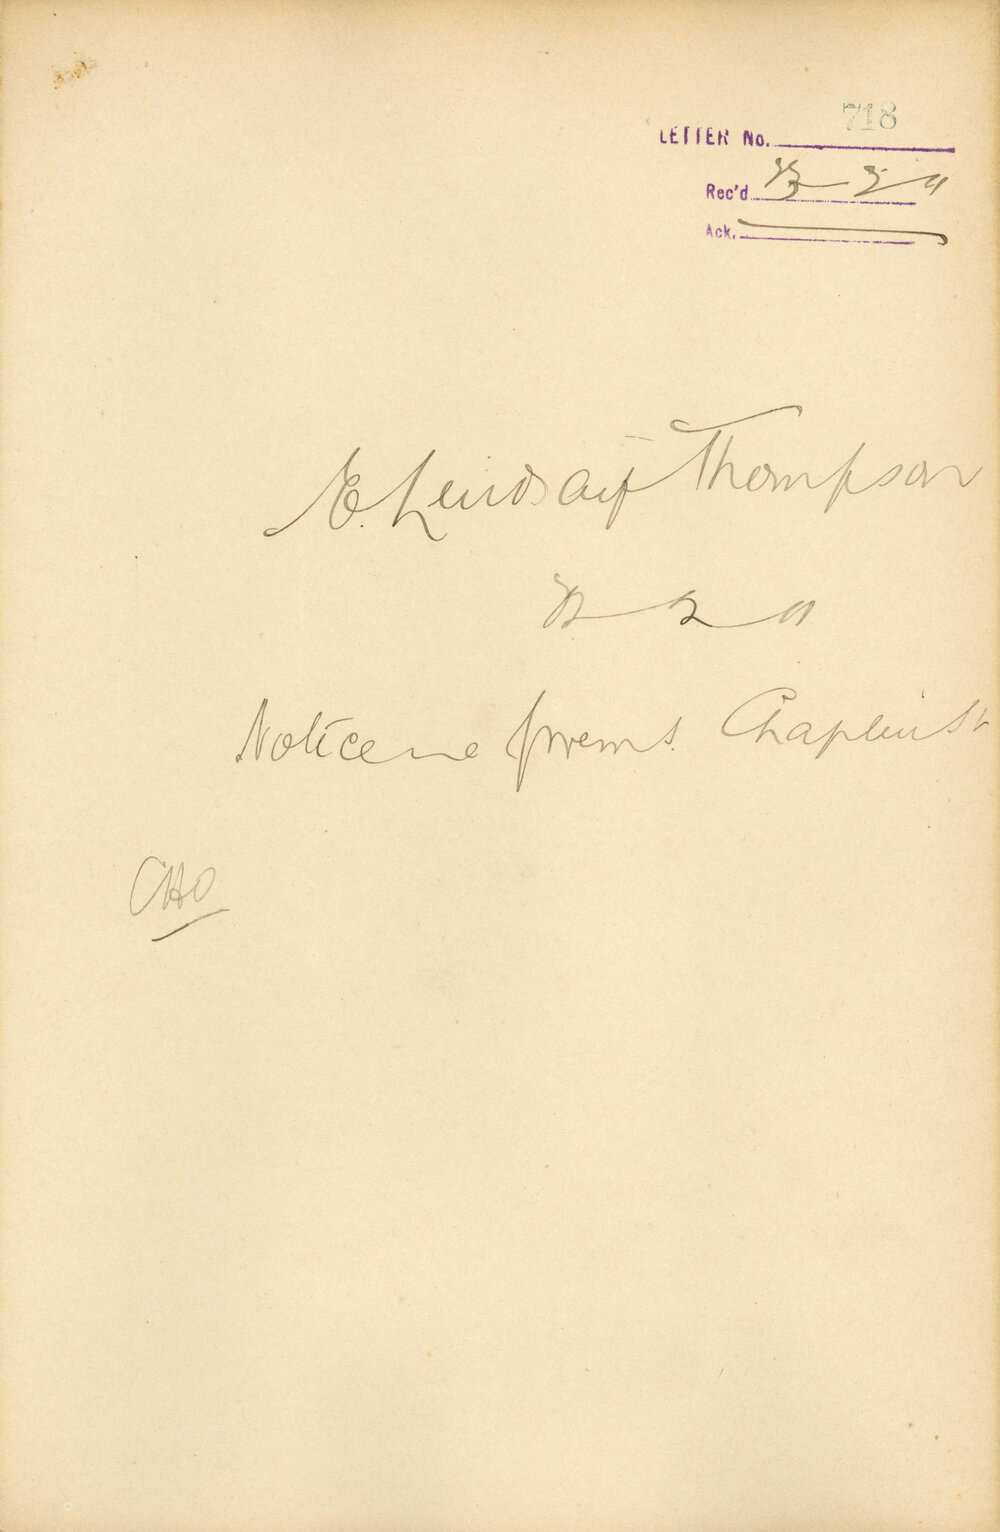 718
LETTER No.
Rec'd 11
Ack.
E. Lindsay Thompson
11
Notice re prems. Chaplin St
CHO